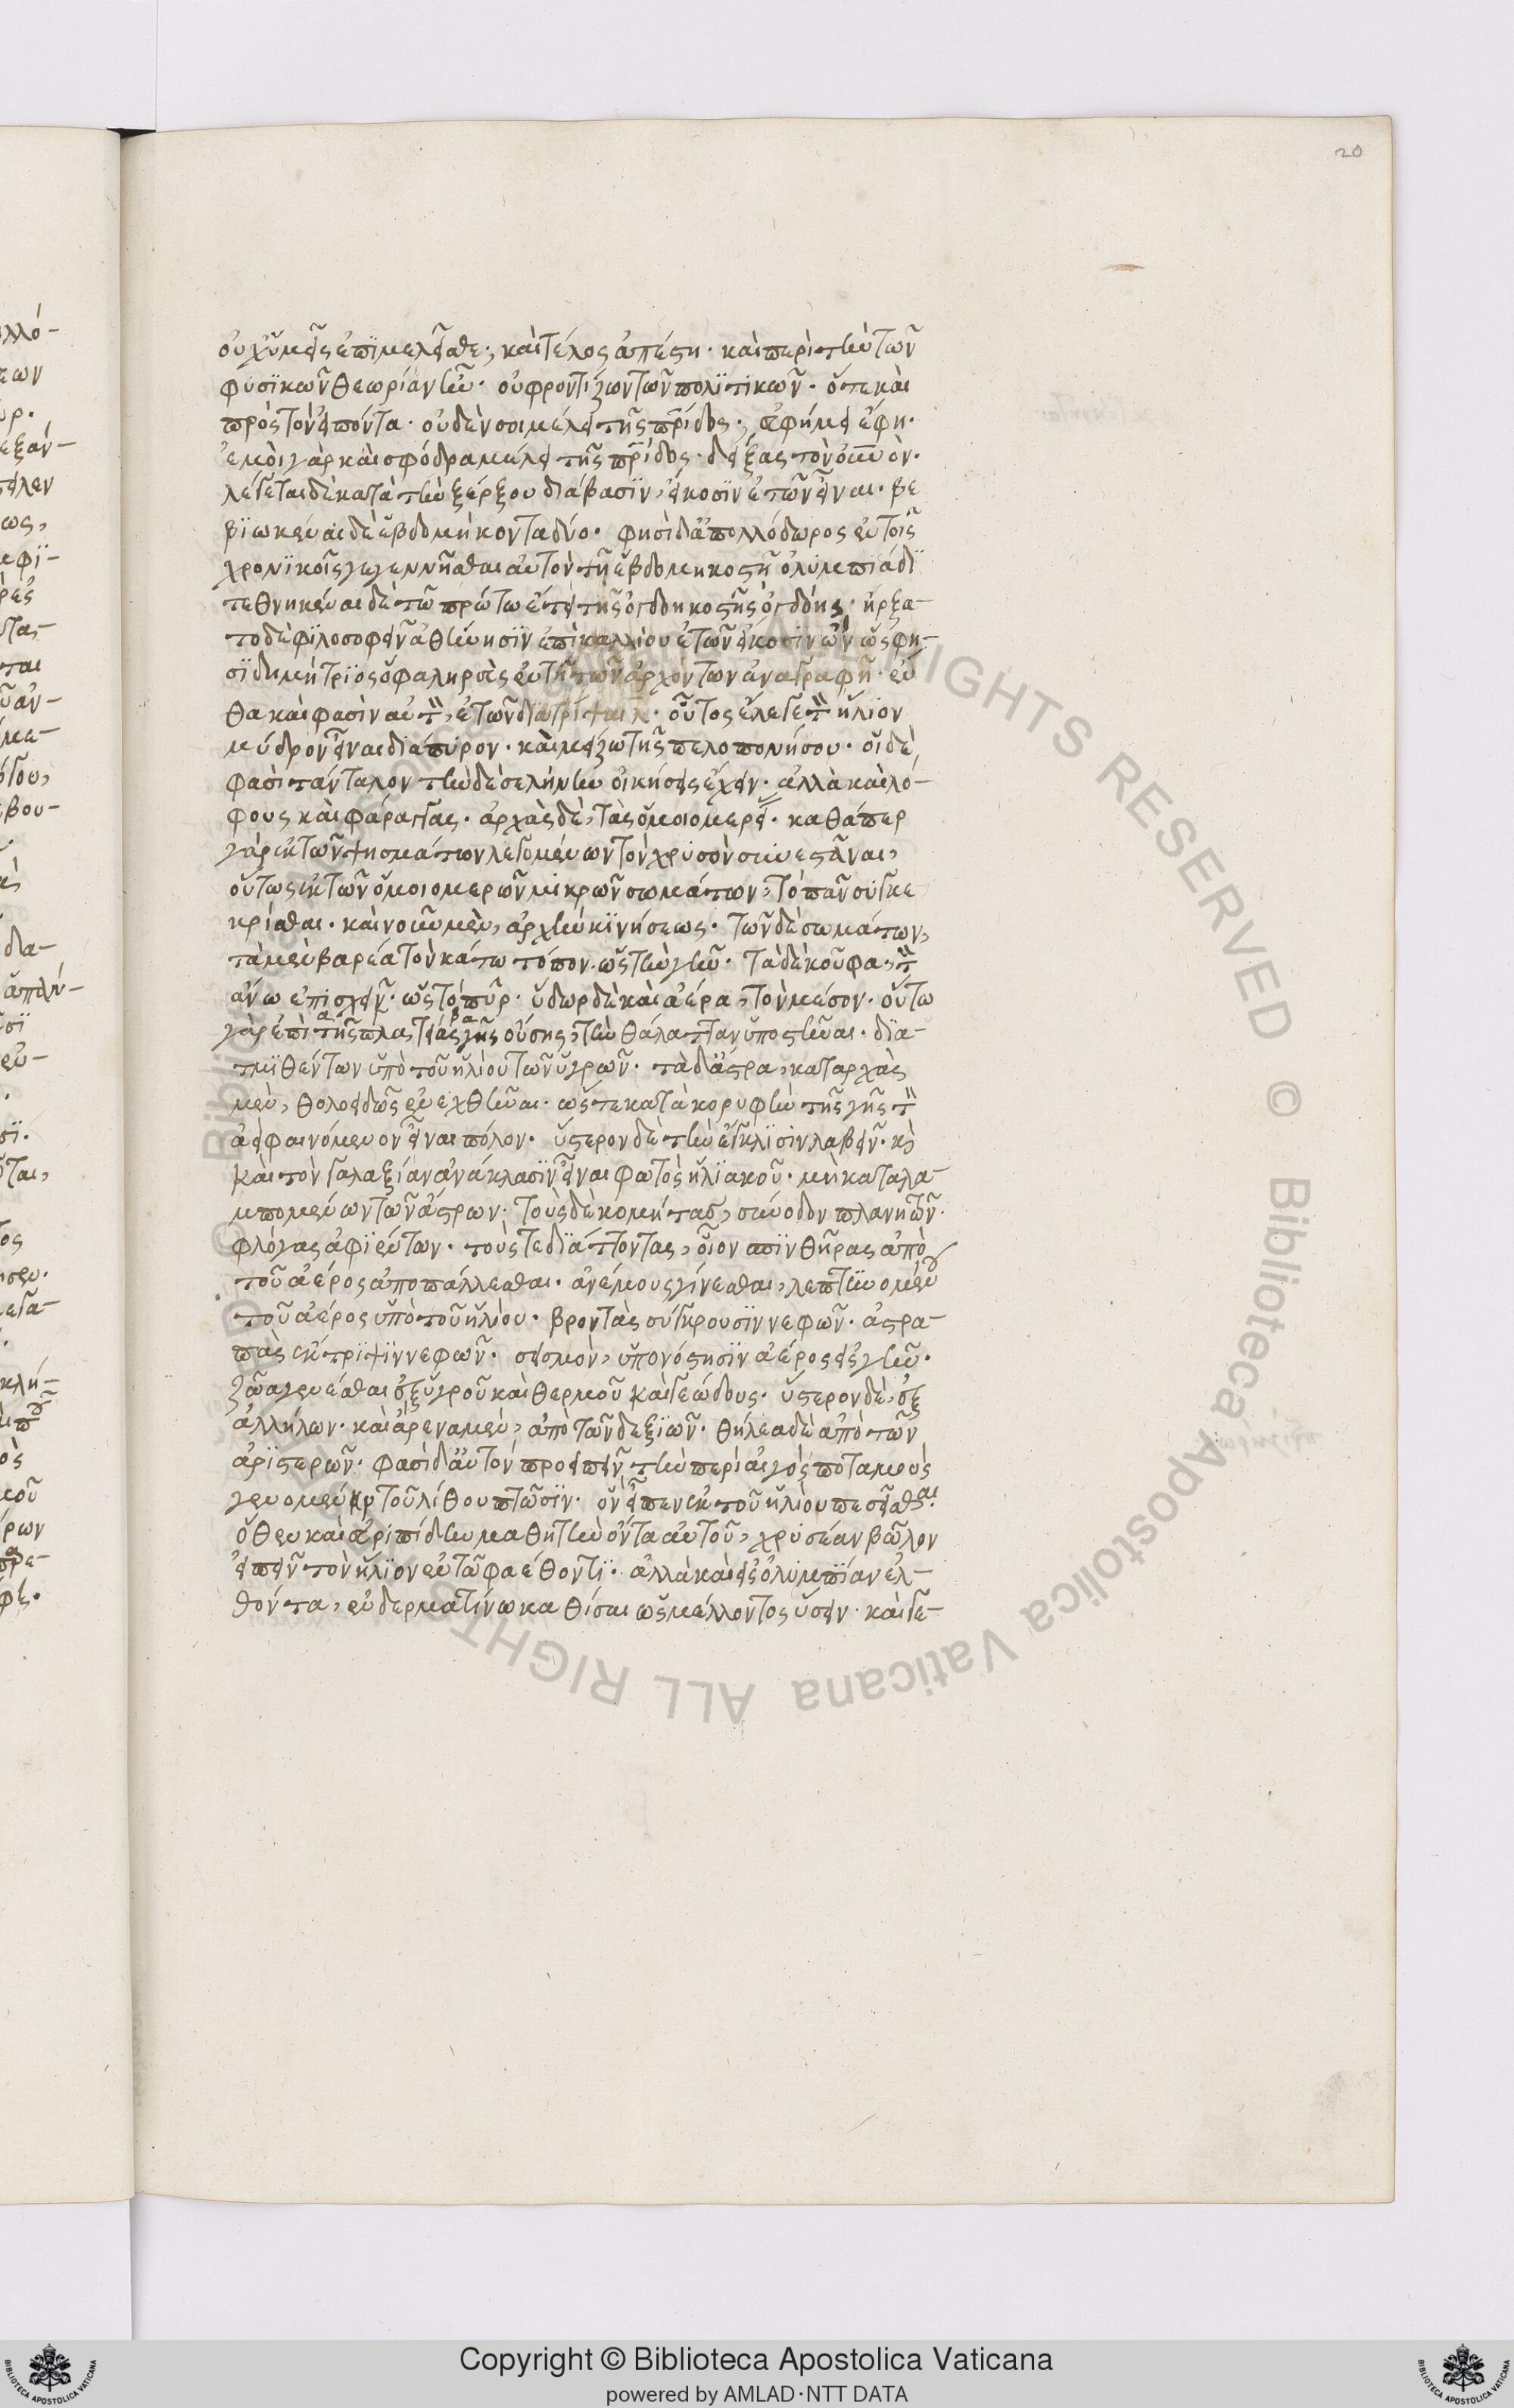 20
οὐχ ὑμεῖς ἐπϊμελεῖσθε; καὶ τέλος ἀπέστη. καὶ περὶ τὴν τῶν
φυσϊκῶν θεωρίαν ἦν. οὐ φροντίζων τῶν πολϊτικῶν. ὅτε καὶ
πρὸς τὸν εἰπόντα. οὐδέν σοι μέλει τῆς πρίδος; εὐφήμει ἔφη.
ἐμοὶ γὰρ καὶ σφόδρα μέλει τῆς πρίδος. δείξας τὸν οὐνον.
λέγεται δὲ κατὰ τὴν ξέρξου διάβασϊν, εἴκοσϊν ἐτῶν εἶναι. βε
βϊωκέναι δὲ ἑβδομήκοντα δύο. φησὶ δ' ἀπολλόδωρος ἐν τοῖς
χρονϊκοῖς γεγεννῆσθαι αὐτὸν τῇ ἑβδομηκοστῇ ὀλυμπιάδϊ
τεθνηκέναι δὲ τῷ πρώτω ἔτει τῆς ὀγδοηκοστῆς ὀγδόης. ἤρξα-
το δὲ φϊλοσοφεῖν ἀθήνησϊν ἐπὶ καλλίου ἐτῶν εἴκοσιν ὤν ὥς φη-
σϊ δημήτρϊος ὁ φαληρεὺς ἐν τῇ τῶν ἀρχόντων ἀναγραφῇ. ἔν
θα καὶ φασὶν αὐτὸν, ἐτῶν διατρίψαι λ. οὗτος ἔλεγε τὸν ἥλϊον
μύδρον εἶναι διάπυρον. καὶ μείζω τῆς πελοπονήσου. οἱ δέ
φασὶ τάνταλον τὴν δὲ σελήνην οἰκήσεις ἔχειν. ἀλλὰ καὶ λό-
φους καὶ φάραγγας. ἀρχὰς δὲ, τὰς ὁμοιομερεί. καθάπερ
γὰρ ἐκ τῶν ψηγμάτων λεγομένων τὸν χρυσὸν συνεστᾶναι,
οὕτως ἐκ τῶν ὁμοιομερῶν μικρῶν σωμάτων, τὸ πᾶν συγκε
κρίσθαι. καὶ νοῦν μὲν, ἀρχὴν κϊνήσεως. τῶν δὲ σωμάτων,
τὰ μὲν βαρέα τὸν κάτω τόπον. ὡς τὴν γῆν. τὰ δὲ κοῦφα, τὸν
ἄνω ἐπισχεῖν. ὡς τὸ πῦρ. ὕδωρ δὲ καὶ ἀέρα, τὸν μέσον. οὕτω
γὰρ ἐπὶ τῆς πλατείας γῆς οὔσης, τὴν θάλατταν ὑποστῆναι. δϊα-
τμϊθέντων ὑπὸ τοῦ ἡλίου τῶν ὑγρῶν. τὰ δ' ἄστρα, καταρχὰς
μὲν, θολοειδῶς ἐνεχθῆναι. ὥστε κατὰ κορυφὴν τῆς γῆς τὸν
ἀεὶ φαινόμενον εἶναι πόλον. ὕστερον δὲ τὴν ἔγκλϊσιν λαβεῖν. κὶ
καὶ τὸν γαλαξίαν ἀνάκλασϊν εἶναι φωτὸς ἡλϊακοῦ. μὴ καταλα-
μπομένων τῶν ἄστρων. τοὺς δὲ κομήτας, σύνοδον πλανητῶν.
φλόγας ἀφϊέντων. τούς τε δϊάττοντας, οἷον σπϊνθῆρας ἀπὸ
τοῦ ἀέρος ἀποπάλλεσθαι. ἀνέμους γίνεσθαι, λεπτϋνομένου
τοῦ ἀέρος ὑπὸ τοῦ ἡλίου. βροντὰς σύγκρουσϊν νεφῶν. ἀστρα-
πὰς ἔκτρϊψϊν νεφῶν. σεισμὸν, ὑπονόστησϊν ἀέρος εἰς γῆν.
ζῶα γενέσθαι ἐξ ὑγροῦ καὶ θερμοῦ καὶ γεώδους. ὕστερον δὲ, ἐξ
ἀλλήλων. καὶ ἄρενα μὲν, ἀπὸ τῶν δεξϊῶν. θήλεα δὲ ἀπὸ τῶν
ἀρϊστερῶν. φασὶ δ' αὐτὸν προειπεῖν τὴν περὶ αἰγὸς ποταμοὺς
γενομένην τοῦ λίθου πτῶσϊν. ὃν εἶπεν ἐκ τοῦ ἡλίου πεσεῖσθαι.
ὅθεν καὶ εὐριπίδην μαθητὴν ὄντα αὐτοῦ, χρυσέαν βῶλον
εἰπεῖν τὸν ἥλϊον ἐν τῶ φαέθοντϊ. ἀλλὰ καὶ εἰς ὀλυμπϊαν ἐλ-
θόντα, ἐν δερματίνω καθίσαι ὡς μέλλοντος ὕσειν. καὶ γε-
Copyright © Biblioteca Apostolica Vaticana
powered by AMLAD·NTT DATA